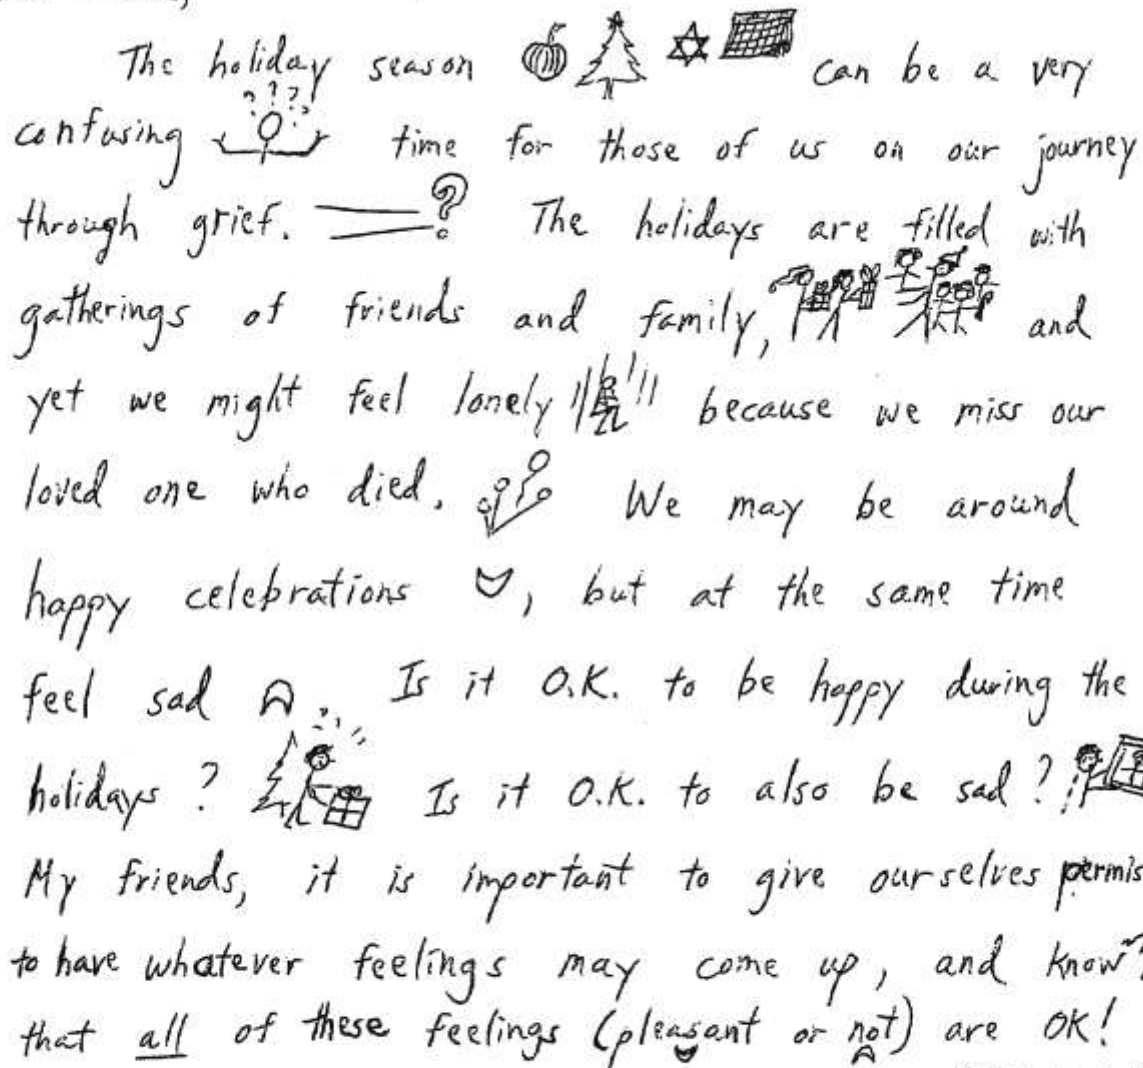 The holiday season can be a very
confusing time for those of us on our journey
through grief. ? The holidays are filled with
gatherings of friends and family, and
yet we might feel lonely because we miss our
loved one who died. We may be around
happy celebrations , but at the same time
feel sad . Is it O.K. to be happy during the
holidays ? Is it O.K. to also be sad ?
My friends, it is important to give ourselves permis
to have whatever feelings may come up, and know
that all of these feelings (pleasant or not) are OK!